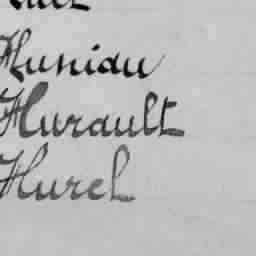 Huniau
Hurault
Hurel